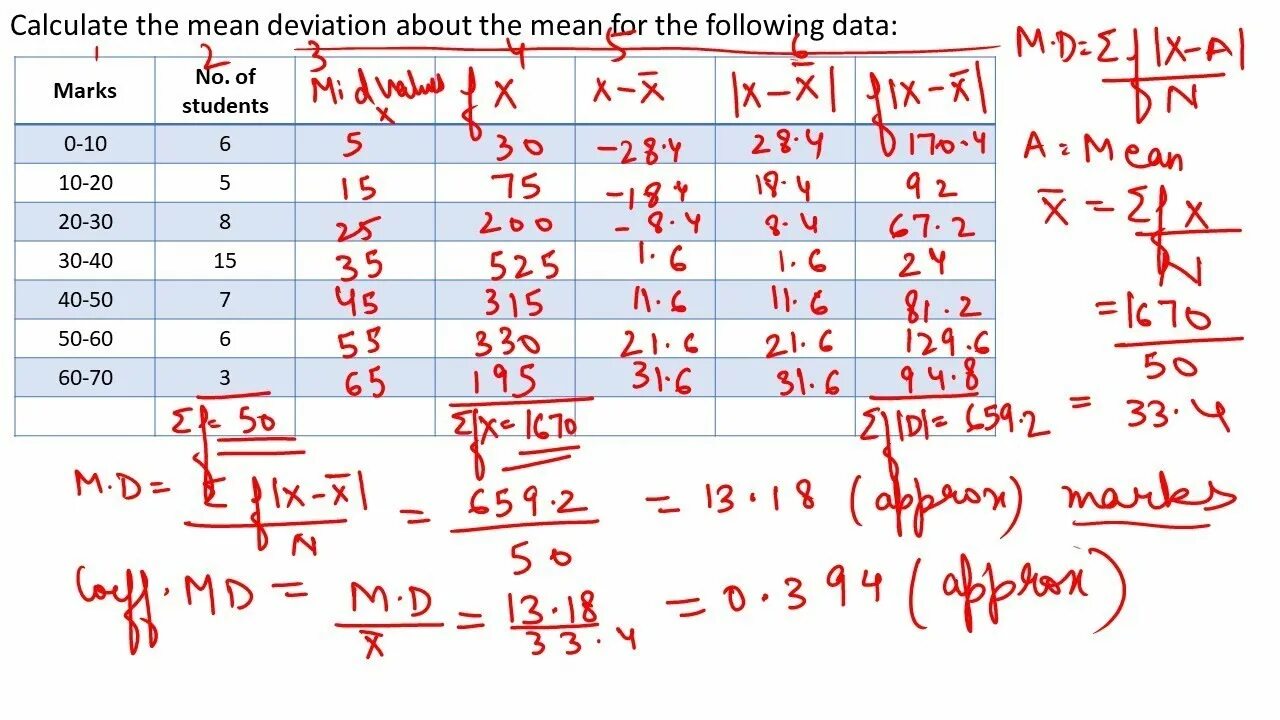 Calculate the mean deviation about the mean for the following data:
1 2 3 4 5 6
Marks No. of students Mid values x fX X-X̄ |X-X̄| f|X-X̄|
0-10 6 5 30 -28.4 28.4 170.4
10-20 5 15 75 -18.4 18.4 92
20-30 8 25 200 -8.4 8.4 67.2
30-40 15 35 525 1.6 1.6 24
40-50 7 45 315 11.6 11.6 81.2
50-60 6 55 330 21.6 21.6 129.6
60-70 3 65 195 31.6 31.6 94.8
Σf= 50 ΣfX= 1670 Σf|D|= 659.2
M.D= Σf|X-A|
N
A = Mean
X̄ = ΣfX
N
= 1670
50
= 33.4
M.D = Σ f|X-X̄| = 659.2 = 13.18 (approx) marks
N 50
Coeff. MD = M.D = 13.18 = 0.394 (approx)
X̄ 33.4